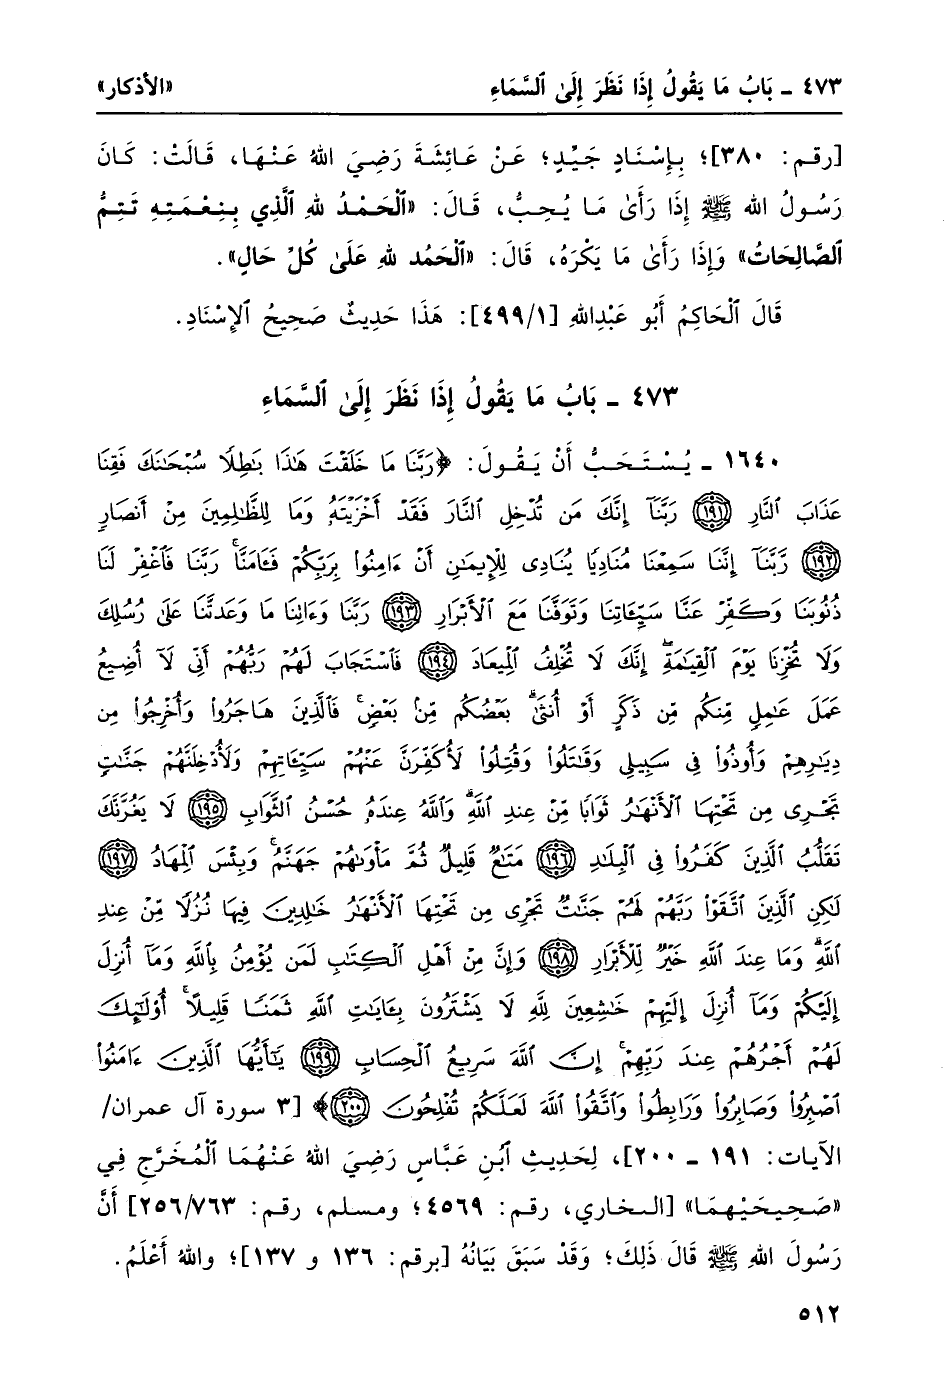 ٤٧٣ ـ بَابُ مَا يَقُولُ إِذَا نَظَرَ إِلَىٰ ٱلسَّمَاءِ «الأذكار»
[رقم: ٣٨٠]؛ بِإِسْنَادٍ جَيِّدٍ؛ عَنْ عَائِشَةَ رَضِيَ اللهُ عَنْهَا، قَالَتْ: كَانَ
رَسُولُ اللهِ ﷺ إِذَا رَأَىٰ مَا يُحِبُّ، قَالَ: «ٱلْحَمْدُ للهِ ٱلَّذِي بِنِعْمَتِهِ تَتِمُّ
ٱلصَّالِحَاتُ» وَإِذَا رَأَىٰ مَا يَكْرَهُ، قَالَ: «ٱلْحَمْدُ للهِ عَلَىٰ كُلِّ حَالٍ».
قَالَ ٱلْحَاكِمُ أَبُو عَبْدِاللهِ [٤٩٩/١]: هَذَا حَدِيثٌ صَحِيحُ ٱلإِسْنَادِ.
٤٧٣ ـ بَابُ مَا يَقُولُ إِذَا نَظَرَ إِلَىٰ ٱلسَّمَاءِ
١٦٤٠ ـ يُسْتَحَبُّ أَنْ يَقُولَ: ﴿رَبَّنَا مَا خَلَقْتَ هَٰذَا بَٰطِلًا سُبْحَٰنَكَ فَقِنَا
عَذَابَ ٱلنَّارِ ۝١٩١ رَبَّنَآ إِنَّكَ مَن تُدْخِلِ ٱلنَّارَ فَقَدْ أَخْزَيْتَهُۥ وَمَا لِلظَّٰلِمِينَ مِنْ أَنصَارٍ
۝١٩٢ رَّبَّنَآ إِنَّنَا سَمِعْنَا مُنَادِيًا يُنَادِى لِلْإِيمَٰنِ أَنْ ءَامِنُوا۟ بِرَبِّكُمْ فَـَٔامَنَّا ۚ رَبَّنَا فَٱغْفِرْ لَنَا
ذُنُوبَنَا وَكَفِّرْ عَنَّا سَيِّـَٔاتِنَا وَتَوَفَّنَا مَعَ ٱلْأَبْرَارِ ۝١٩٣ رَبَّنَا وَءَاتِنَا مَا وَعَدتَّنَا عَلَىٰ رُسُلِكَ
وَلَا تُخْزِنَا يَوْمَ ٱلْقِيَٰمَةِ ۗ إِنَّكَ لَا تُخْلِفُ ٱلْمِيعَادَ ۝١٩٤ فَٱسْتَجَابَ لَهُمْ رَبُّهُمْ أَنِّى لَآ أُضِيعُ
عَمَلَ عَٰمِلٍ مِّنكُم مِّن ذَكَرٍ أَوْ أُنثَىٰ ۖ بَعْضُكُم مِّنۢ بَعْضٍ ۖ فَٱلَّذِينَ هَاجَرُوا۟ وَأُخْرِجُوا۟ مِن
دِيَٰرِهِمْ وَأُوذُوا۟ فِى سَبِيلِى وَقَٰتَلُوا۟ وَقُتِلُوا۟ لَأُكَفِّرَنَّ عَنْهُمْ سَيِّـَٔاتِهِمْ وَلَأُدْخِلَنَّهُمْ جَنَّٰتٍ
تَجْرِى مِن تَحْتِهَا ٱلْأَنْهَٰرُ ثَوَابًا مِّنْ عِندِ ٱللَّهِ ۗ وَٱللَّهُ عِندَهُۥ حُسْنُ ٱلثَّوَابِ ۝١٩٥ لَا يَغُرَّنَّكَ
تَقَلُّبُ ٱلَّذِينَ كَفَرُوا۟ فِى ٱلْبِلَٰدِ ۝١٩٦ مَتَٰعٌ قَلِيلٌ ثُمَّ مَأْوَىٰهُمْ جَهَنَّمُ ۚ وَبِئْسَ ٱلْمِهَادُ ۝١٩٧
لَٰكِنِ ٱلَّذِينَ ٱتَّقَوْا۟ رَبَّهُمْ لَهُمْ جَنَّٰتٌ تَجْرِى مِن تَحْتِهَا ٱلْأَنْهَٰرُ خَٰلِدِينَ فِيهَا نُزُلًا مِّنْ عِندِ
ٱللَّهِ ۗ وَمَا عِندَ ٱللَّهِ خَيْرٌ لِّلْأَبْرَارِ ۝١٩٨ وَإِنَّ مِنْ أَهْلِ ٱلْكِتَٰبِ لَمَن يُؤْمِنُ بِٱللَّهِ وَمَآ أُنزِلَ
إِلَيْكُمْ وَمَآ أُنزِلَ إِلَيْهِمْ خَٰشِعِينَ لِلَّهِ لَا يَشْتَرُونَ بِـَٔايَٰتِ ٱللَّهِ ثَمَنًا قَلِيلًا ۗ أُو۟لَٰٓئِكَ
لَهُمْ أَجْرُهُمْ عِندَ رَبِّهِمْ ۗ إِنَّ ٱللَّهَ سَرِيعُ ٱلْحِسَابِ ۝١٩٩ يَٰٓأَيُّهَا ٱلَّذِينَ ءَامَنُوا۟
ٱصْبِرُوا۟ وَصَابِرُوا۟ وَرَابِطُوا۟ وَٱتَّقُوا۟ ٱللَّهَ لَعَلَّكُمْ تُفْلِحُونَ ۝٢٠٠﴾ [٣ سورة آل عمران/
الآيات: ١٩١ ـ ٢٠٠]، لِحَدِيثِ ٱبْنِ عَبَّاسٍ رَضِيَ اللهُ عَنْهُمَا ٱلْمُخَرَّجِ فِي
«صَحِيحَيْهِمَا» [البخاري، رقم: ٤٥٦٩؛ ومسلم، رقم: ٢٥٦/٧٦٣] أَنَّ
رَسُولَ اللهِ ﷺ قَالَ ذَلِكَ؛ وَقَدْ سَبَقَ بَيَانُهُ [برقم: ١٣٦ و ١٣٧]؛ واللهُ أَعْلَمُ.
٥١٢